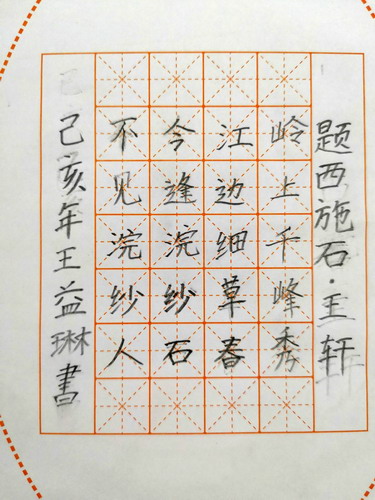 题西施石·王轩
岭上千峰秀
江边细草春
今逢浣纱石
不见浣纱人
己亥年王益琳書